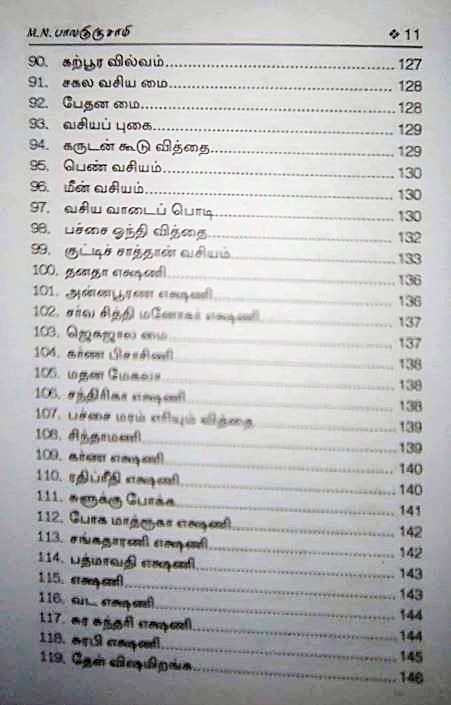 M.N. பாலகுருசாமி ❖ 11
90. கற்பூர வில்வம் 127
91. சகல வசிய மை 128
92. பேதன மை 128
93. வசியப் புகை 129
94. கருடன் கூடு வித்தை 129
95. பெண் வசியம் 130
96. மீன் வசியம் 130
97. வசிய வாடைப் பொடி 130
98. பச்சை ஓந்தி வித்தை 132
99. குட்டிச் சாத்தான் வசியம் 133
100. தனதா எக்ஷணி 136
101. அன்னபூரண எக்ஷணி 136
102. சர்வ சித்தி மனோகர் எக்ஷணி 137
103. ஜெகஜால மை 137
104. கர்ண பிசாசினி 138
105. மதன மேகலா 138
106. சந்திரிகா எக்ஷணி 138
107. பச்சை மரம் எரியும் வித்தை 139
108. சிந்தாமணி 139
109. கர்ண எக்ஷணி 140
110. ரதிப்ரீதி எக்ஷணி 140
111. சுளுக்கு போக்க 141
112. போக மாத்ருகா எக்ஷணி 142
113. சங்கதாரணி எக்ஷணி 142
114. பத்மாவதி எக்ஷணி 143
115. எக்ஷணி 143
116. வட எக்ஷணி 144
117. சுர சுந்தரி எக்ஷணி 144
118. சுரபி எக்ஷணி 145
119. தேள் விஷமிறங்க 146